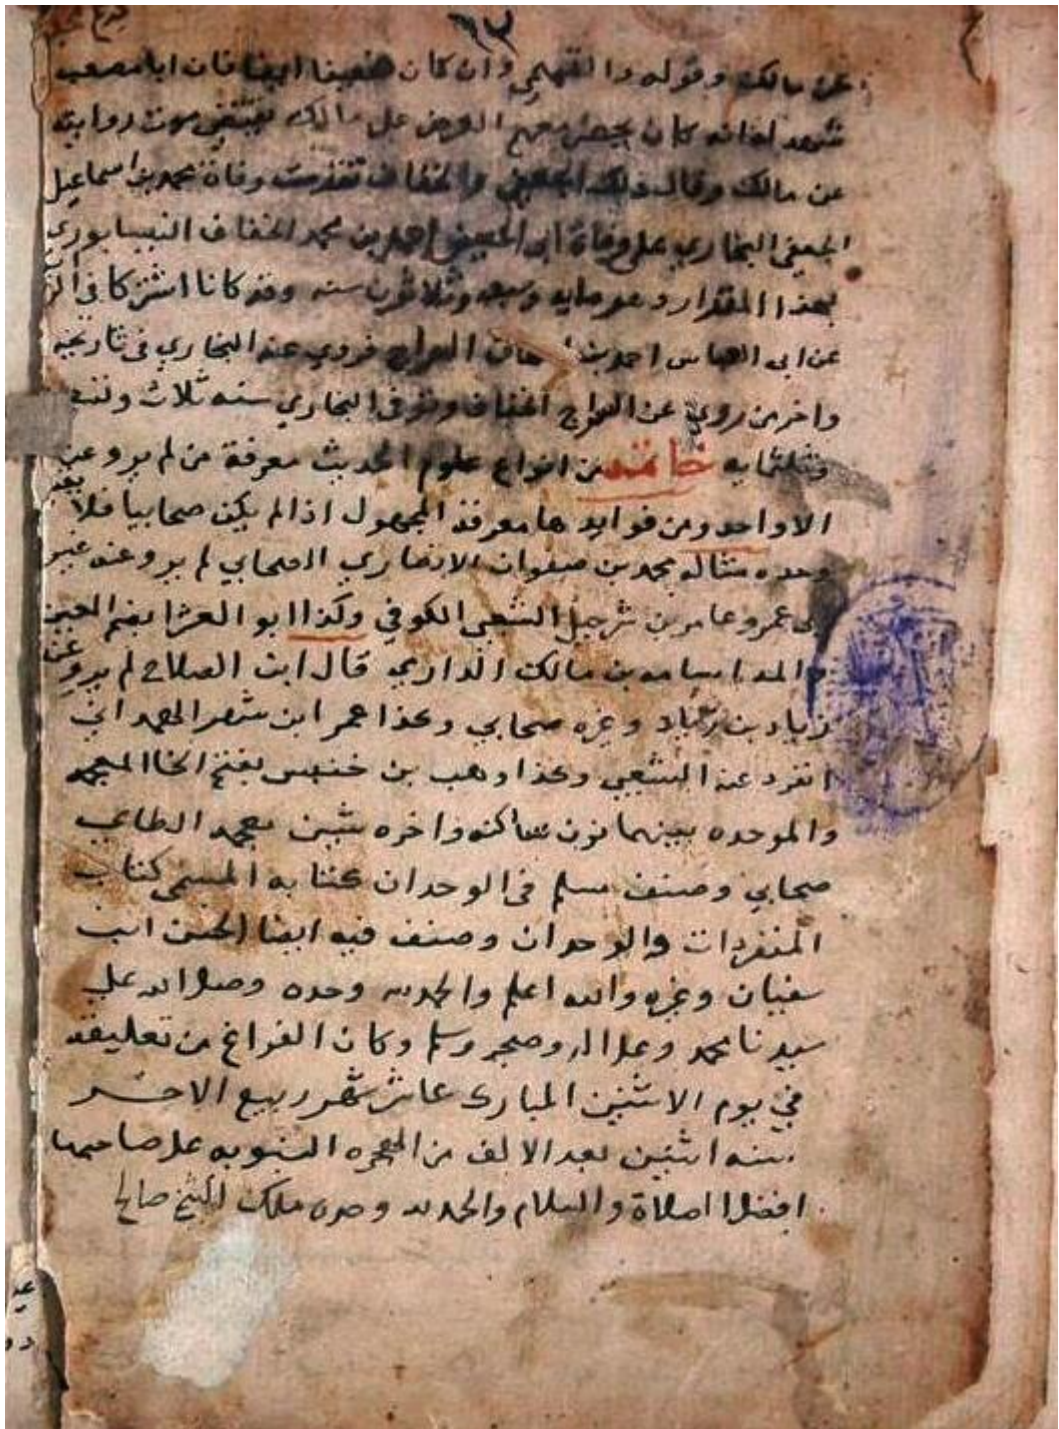 ٩٢
عن مالك وقوله والفهمي وان كان ضعيفا ايضا فان ابا مصعب
شهد له انه كان يحضر معهم العرض على مالك
عن مالك وقال ذلك الجعفي والخفاف تقدمت وفاة محمد بن اسماعيل
الجعفي البخاري على وفاة ابي الحسين احمد بن محمد الخفاف النيسابوري
بهذا المقدار وهو مايه وسبعه وثلاثون سنه وقد كانا اشتركا في
عن ابي العباس احمد بن اسحاق السراج فروي عنه البخاري في تاريخه
واخر من روي عن السراج الخفاف وتوفى البخاري سنه ثلاث
وثلثمايه خاتمه من انواع علوم الحديث معرفة من لم يرو عنه
الا واحد ومن فوايدها معرفة المجهول اذا لم يكن صحابيا فلا
وحده مثاله محمد بن صفوان الانصاري الصحابي لم يرو عنه غير
ابى عمرو عامر بن شرحبيل الشعبي الكوفي وكذا ابو العشرا بضم العين
والمد اسامه بن مالك الداري قال ابن الصلاح لم يرو عن
زياد بن وغيره صحابي وكذا عمر ابن شهر الهمداني
انفرد عنه الشعبي وكذا وهب بن خنبش بفتح الخا المعجمه
والموحده بينهما نون ساكنه واخره شين معجمه الطاي
صحابي وصنف مسلم في الوحدان كتابه المسمى كتاب
المنفردات والوحدان وصنف فيه ايضا الحسن ابن
سفيان وغيره والله اعلم والحمد لله وحده وصلى الله على
سيدنا محمد وعلى اله وصحبه وسلم وكان الفراغ من تعليقه
في يوم الاثنين المبارك عاشر شهر ربيع الاخر
سنه اثنين بعد الالف من الهجره النبويه على صاحبها
افضل الصلاة والسلام والحمد لله وحده ملك الشيخ صالح